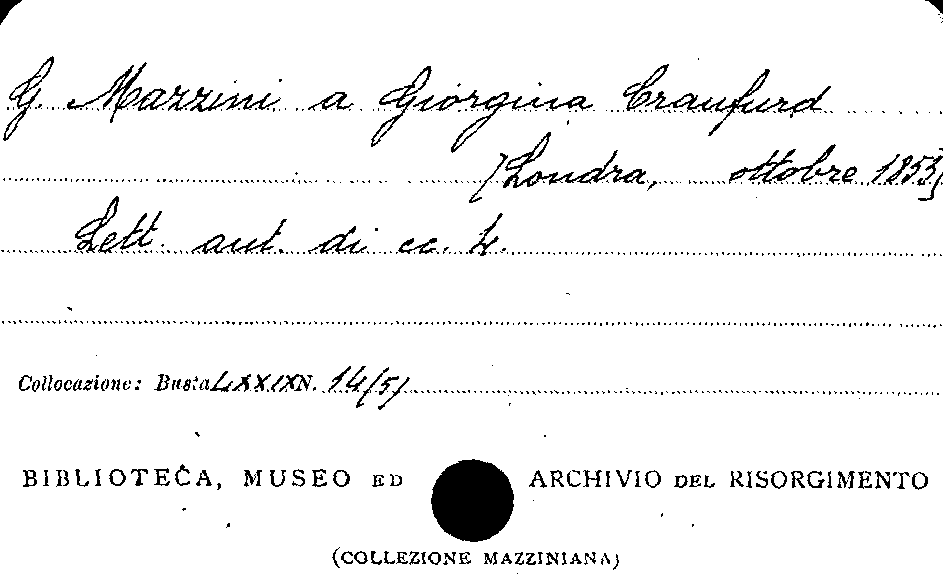 G. Mazzini a Giorgina Craufurd
[Londra, ottobre 1853]
Lett. aut. di cc. 4.
Collocazione: Busta LXXIX N. 14/51
BIBLIOTECA, MUSEO ED ARCHIVIO DEL RISORGIMENTO
(COLLEZIONE MAZZINIANA)